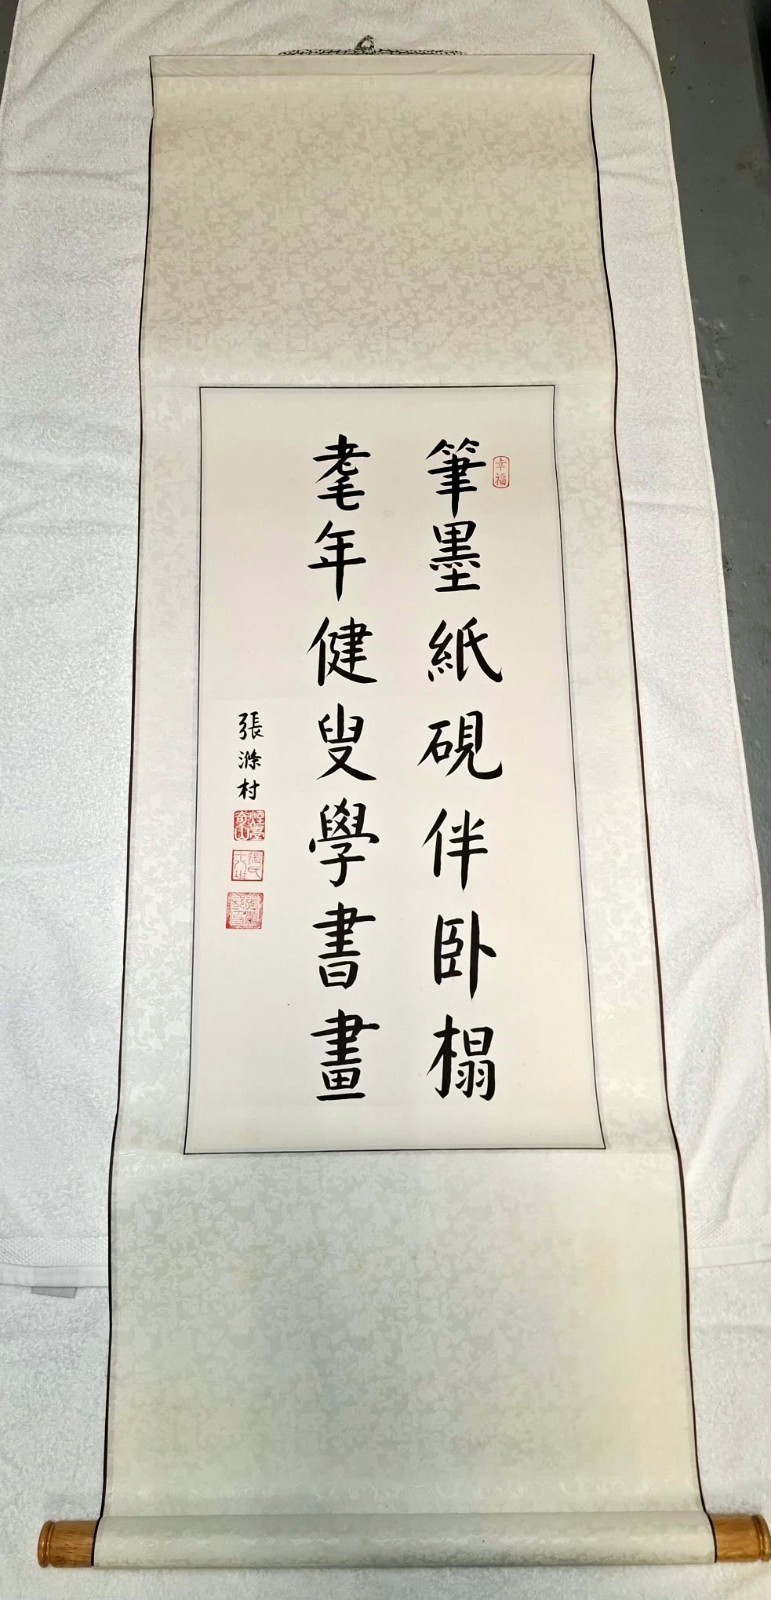 幸福
筆墨紙硯伴卧榻
耄年健叟學書畫
張滌村